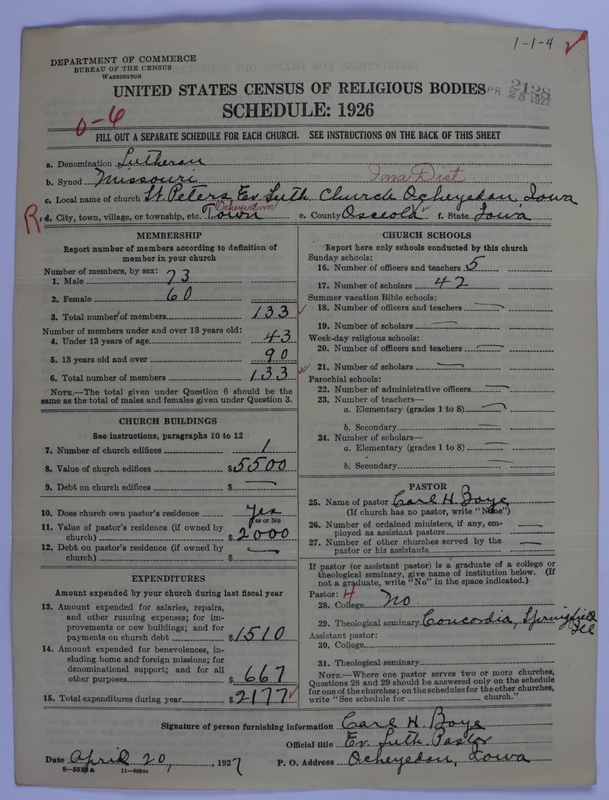 1-1-4 ✓
DEPARTMENT OF COMMERCE
BUREAU OF THE CENSUS
WASHINGTON
UNITED STATES CENSUS OF RELIGIOUS BODIES
2128
APR 25 1927
SCHEDULE: 1926
0-6
FILL OUT A SEPARATE SCHEDULE FOR EACH CHURCH. SEE INSTRUCTIONS ON THE BACK OF THIS SHEET
a. Denomination Lutheran
b. Synod Missouri Iowa Dist
c. Local name of church St. Peters Ev. Luth Church Ocheyedon, Iowa
R. d. City, town, village, or township, etc. Town Ocheyedan e. County Osceola f. State Iowa
MEMBERSHIP
Report number of members according to definition of
member in your church
Number of members, by sex:
1. Male 73
2. Female 60
3. Total number of members 133 ✓
Number of members under and over 13 years old:
4. Under 13 years of age 43
5. 13 years old and over 90
6. Total number of members 133 ✓
NOTE.—The total given under Question 6 should be the
same as the total of males and females given under Question 3.
CHURCH BUILDINGS
See instructions, paragraphs 10 to 12
7. Number of church edifices 1
8. Value of church edifices $5500
9. Debt on church edifices $ —
10. Does church own pastor's residence Yes
Yes or No
11. Value of pastor's residence (if owned by
church) $2000
12. Debt on pastor's residence (if owned by
church) $ —
EXPENDITURES
Amount expended by your church during last fiscal year
13. Amount expended for salaries, repairs,
and other running expenses; for im-
provements or new buildings; and for
payments on church debt $1510
14. Amount expended for benevolences, in-
cluding home and foreign missions; for
denominational support; and for all
other purposes $667
15. Total expenditures during year $2177 ✓
CHURCH SCHOOLS
Report here only schools conducted by this church
Sunday schools:
16. Number of officers and teachers 5
17. Number of scholars 42
Summer vacation Bible schools:
18. Number of officers and teachers —
19. Number of scholars —
Week-day religious schools:
20. Number of officers and teachers —
21. Number of scholars —
Parochial schools:
22. Number of administrative officers —
23. Number of teachers—
a. Elementary (grades 1 to 8) —
b. Secondary
24. Number of scholars—
a. Elementary (grades 1 to 8) —
b. Secondary
PASTOR
25. Name of pastor Carl H. Boye
(If church has no pastor, write "None")
26. Number of ordained ministers, if any, em-
ployed as assistant pastors —
27. Number of other churches served by the
pastor or his assistants —
If pastor (or assistant pastor) is a graduate of a college or
theological seminary, give name of institution below. (If
not a graduate, write "No" in the space indicated.)
Pastor: 4
28. College No
29. Theological seminary Concordia, Springfield
Ill
Assistant pastor:
30. College
31. Theological seminary
NOTE.—Where one pastor serves two or more churches,
Questions 28 and 29 should be answered only on the schedule
for one of the churches; on the schedules for the other churches,
write "See schedule for church."
Signature of person furnishing information Carl H. Boye
Official title Ev. Luth Pastor
Date April 20, , 1927 P. O. Address Ocheyedon, Iowa